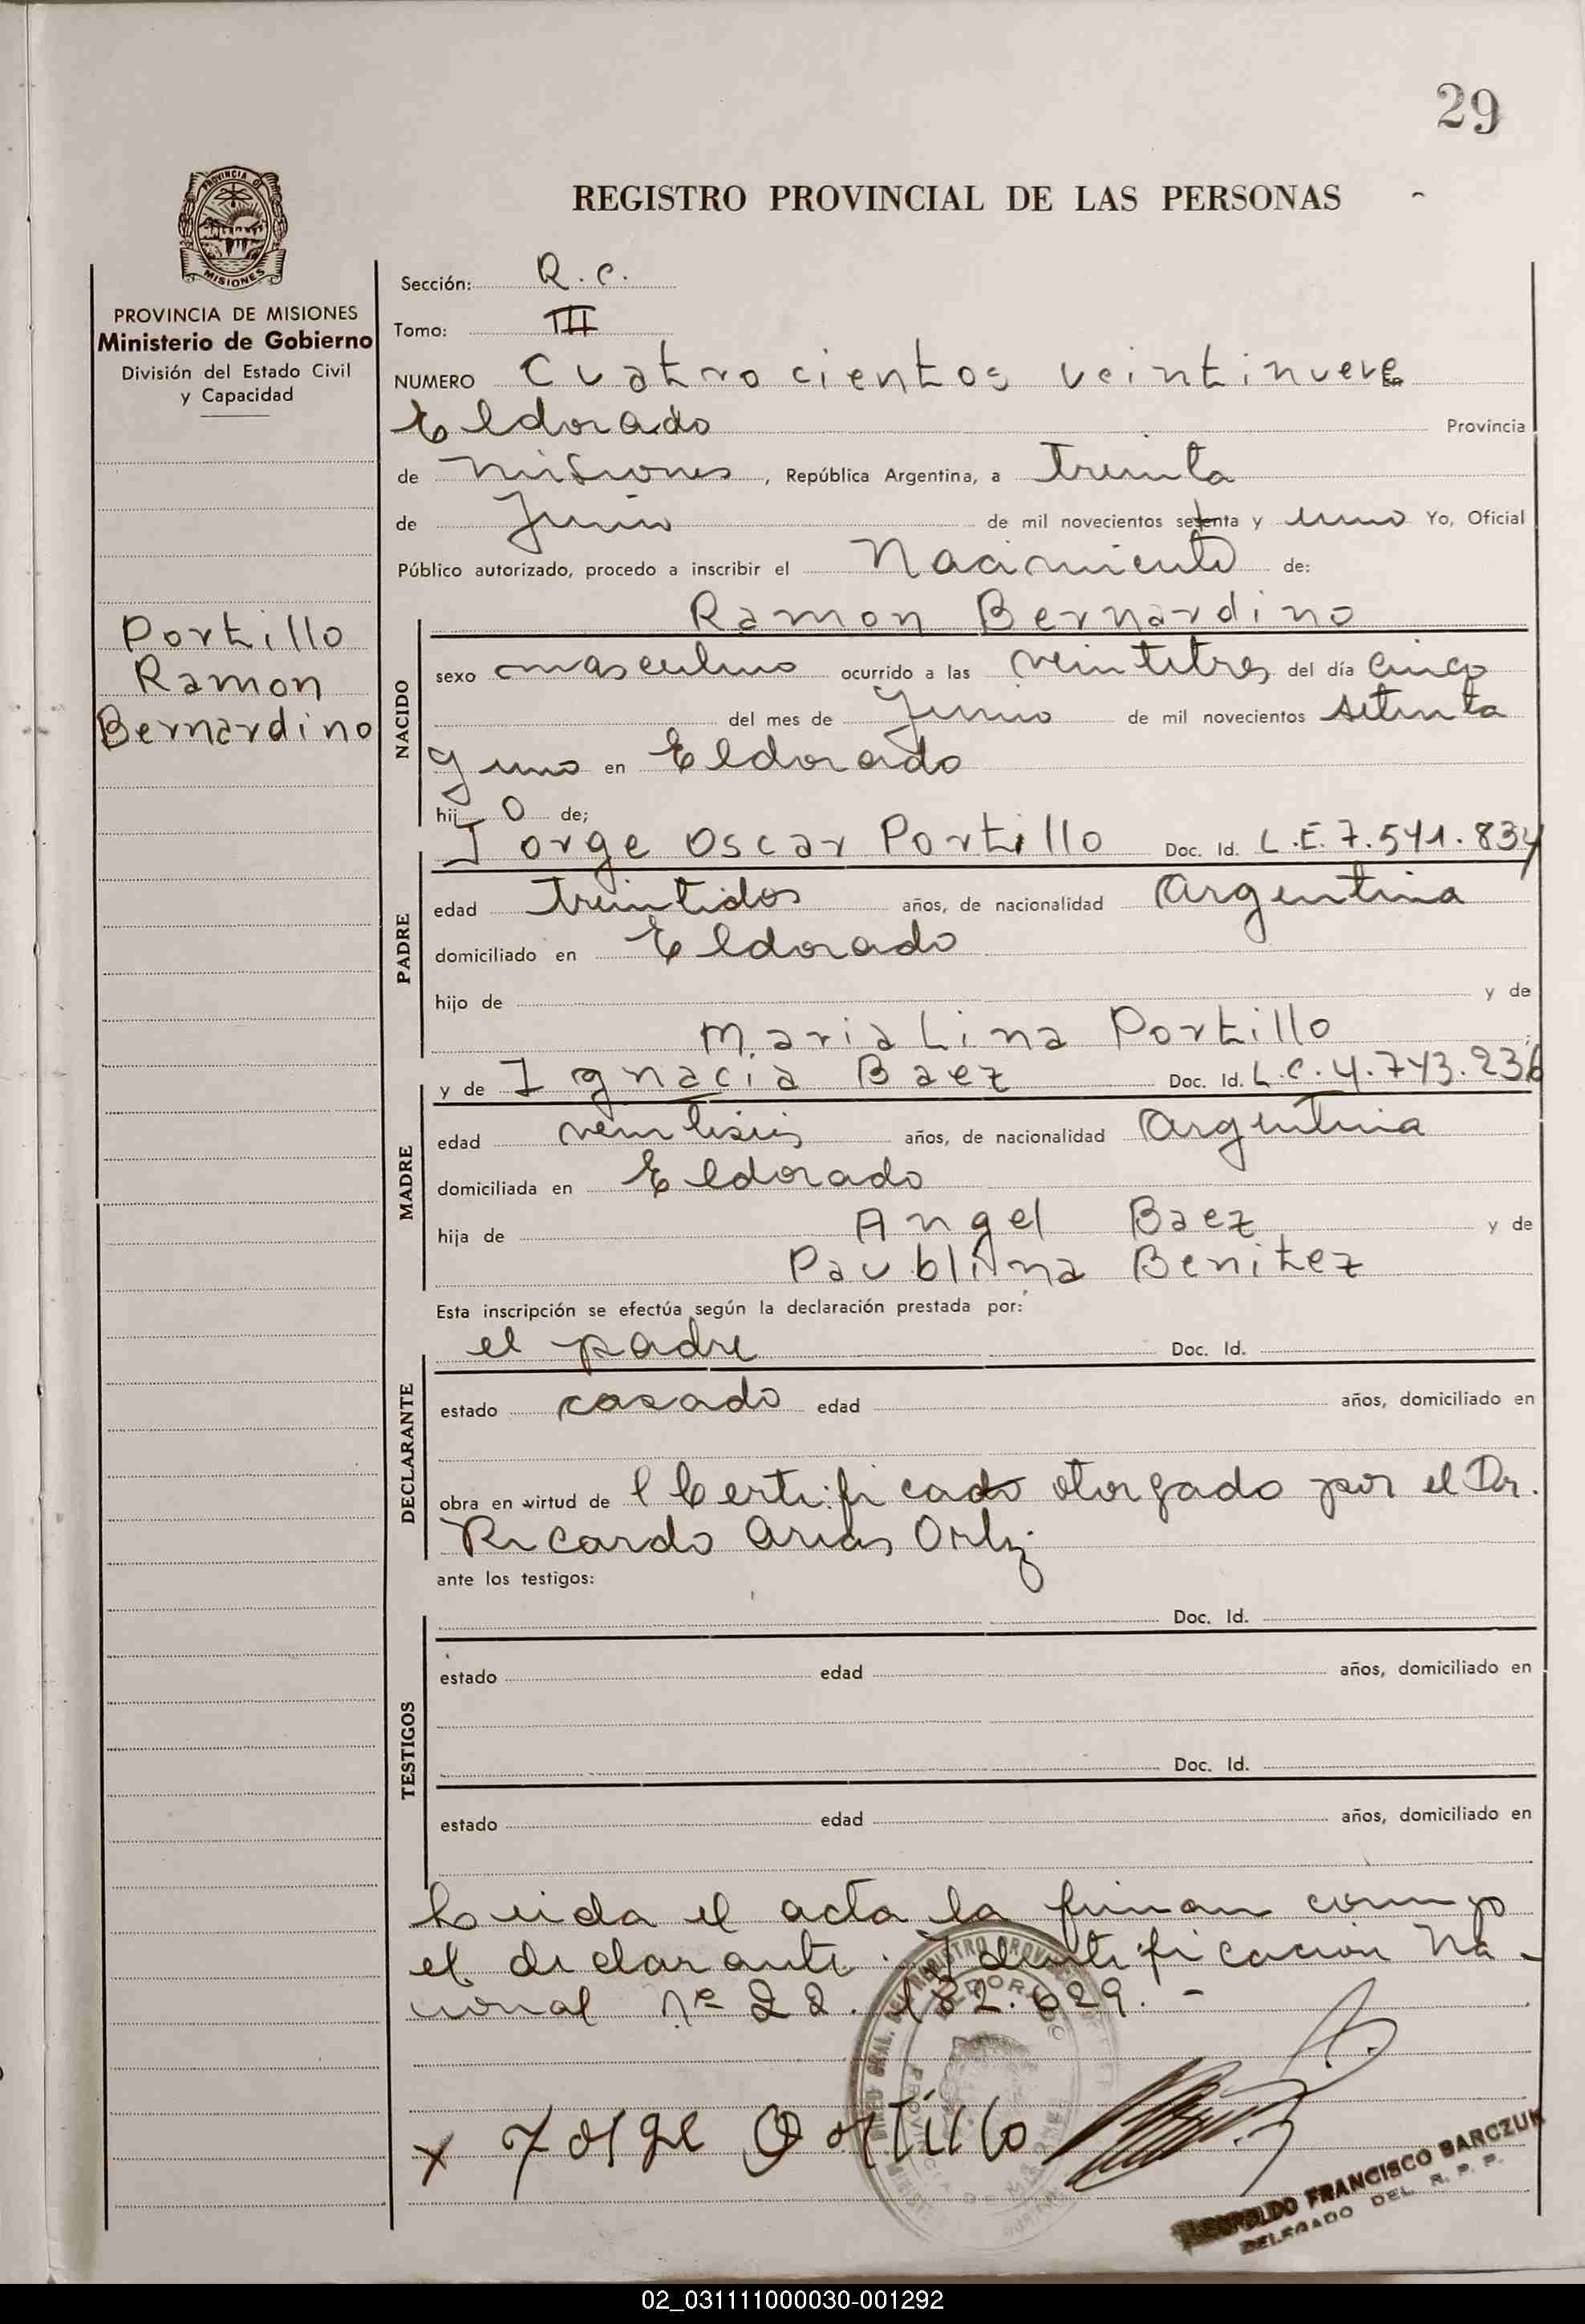 29
PROVINCIA DE
MISIONES
REGISTRO PROVINCIAL DE LAS PERSONAS
PROVINCIA DE MISIONES
Ministerio de Gobierno
División del Estado Civil
y Capacidad
Portillo
Ramon
Bernardino
Sección: R.C.
Tomo: III
NUMERO Cuatrocientos veintinueve
Eldorado Provincia
de Misiones, República Argentina, a Treinta
de Junio de mil novecientos setenta y uno Yo, Oficial
Público autorizado, procedo a inscribir el Nacimiento de:
NACIDO
Ramon Bernardino
sexo masculino ocurrido a las veintitres del día cinco
del mes de Junio de mil novecientos setenta
y uno en Eldorado
hij o de;
PADRE
Jorge Oscar Portillo Doc. Id. L.E. 7.541.834
edad Treintidos años, de nacionalidad Argentina
domiciliado en Eldorado
hijo de y de
Maria Lina Portillo
MADRE
y de Ignacia Baez Doc. Id. L.C. 4.743.236
edad veintiseis años, de nacionalidad Argentina
domiciliada en Eldorado
hija de Angel Baez y de
Paublina Benitez
Esta inscripción se efectúa según la declaración prestada por:
DECLARANTE
el padre Doc. Id.
estado casado edad años, domiciliado en
obra en virtud de l Certificado otorgado por el Dr.
Ricardo Arias Ortiz
ante los testigos:
TESTIGOS
Doc. Id.
estado edad años, domiciliado en
Doc. Id.
estado edad años, domiciliado en
Leida el acta la firman conmigo
el declarante. Identificación Na-
cional nº 22.182.029.-
x Jorge Portillo
FRANCISCO BARCZUK
DELEGADO DEL R. P. P.
02_031111000030-001292